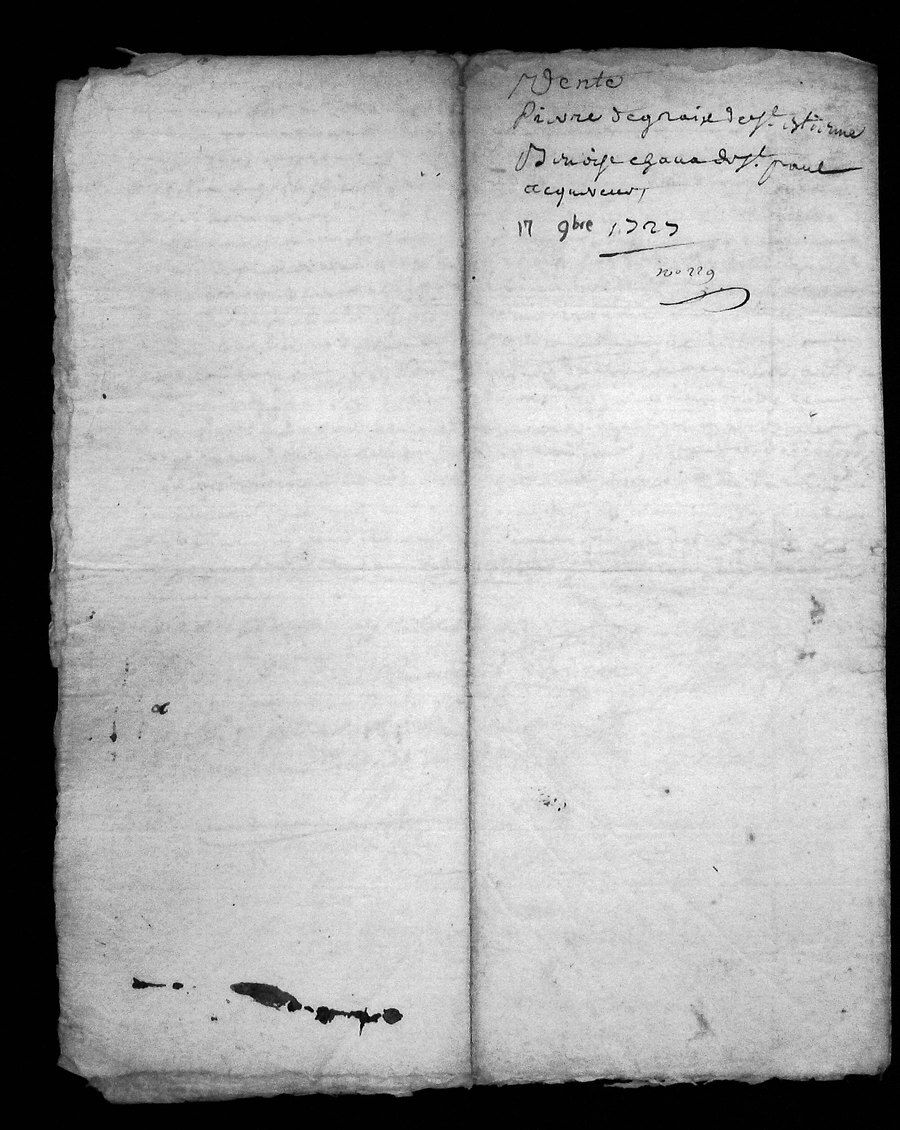 Vente
Pierre degraix de st. estienne
Benoist chava de st. paul
acquereur,
17 9bre 1727
no 229